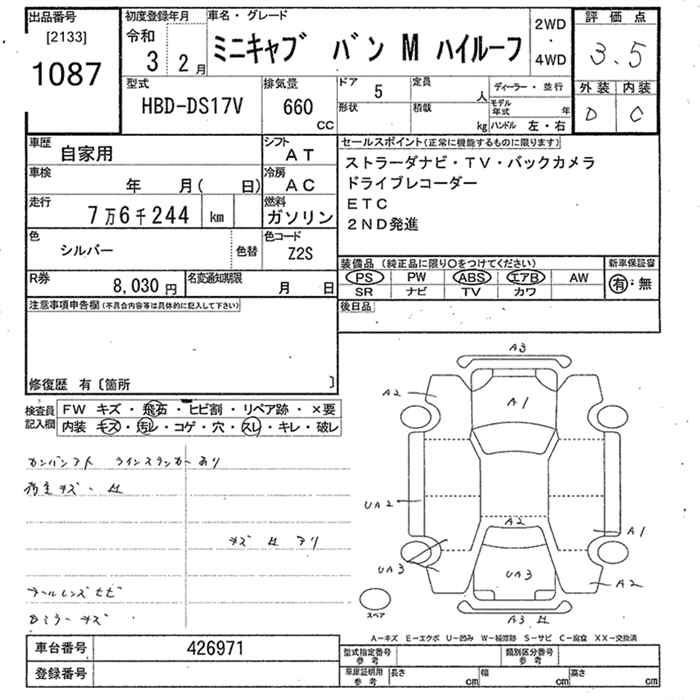 出品番号
[2133]
1087
初度登録年月
令和
3 2月
車名・グレード
ミニキャブ バン M ハイルーフ
2WD
・
4WD
評価点
3.5
外装 内装
D C
型式
HBD-DS17V
排気量
660
cc
ドア
5
定員
人
形状
積載
kg
ディーラー・並行
モデル年式 年
ハンドル 左・右
車歴
自家用
シフト
AT
車検
年 月( 日)
冷房
AC
走行
7万6千244 km
燃料
ガソリン
色
シルバー
色替
色コード
Z2S
R券
8,030円
名変通知期限
月 日
セールスポイント(正常に機能するものに限ります)
ストラーダナビ・TV・バックカメラ
ドライブレコーダー
ETC
2ND発進
装備品 (純正品に限り〇をつけてください)
新車保証書
PS PW ABS エアB AW
SR ナビ TV カワ
有・無
後日品
注意事項申告欄(不具合内容等は具体的に記入して下さい)
修復歴 有〔箇所 〕
検査員記入欄
FW キズ・飛石・ヒビ割・リペア跡・×要
内装 キズ・汚レ・コゲ・穴・スレ・キレ・破レ
キズ 凹 アリ
A3
A2
A1
UA2
A2
A1
UA3
UA3
A2
A3 凹
スペア
A－キズ E－エクボ U－凹み W－補修跡 S－サビ C－腐食 XX－交換済
車台番号
426971
登録番号
型式指定番号
参考
類別区分番号
参考
車庫証明用
参考
長さ cm
幅 cm
高さ cm